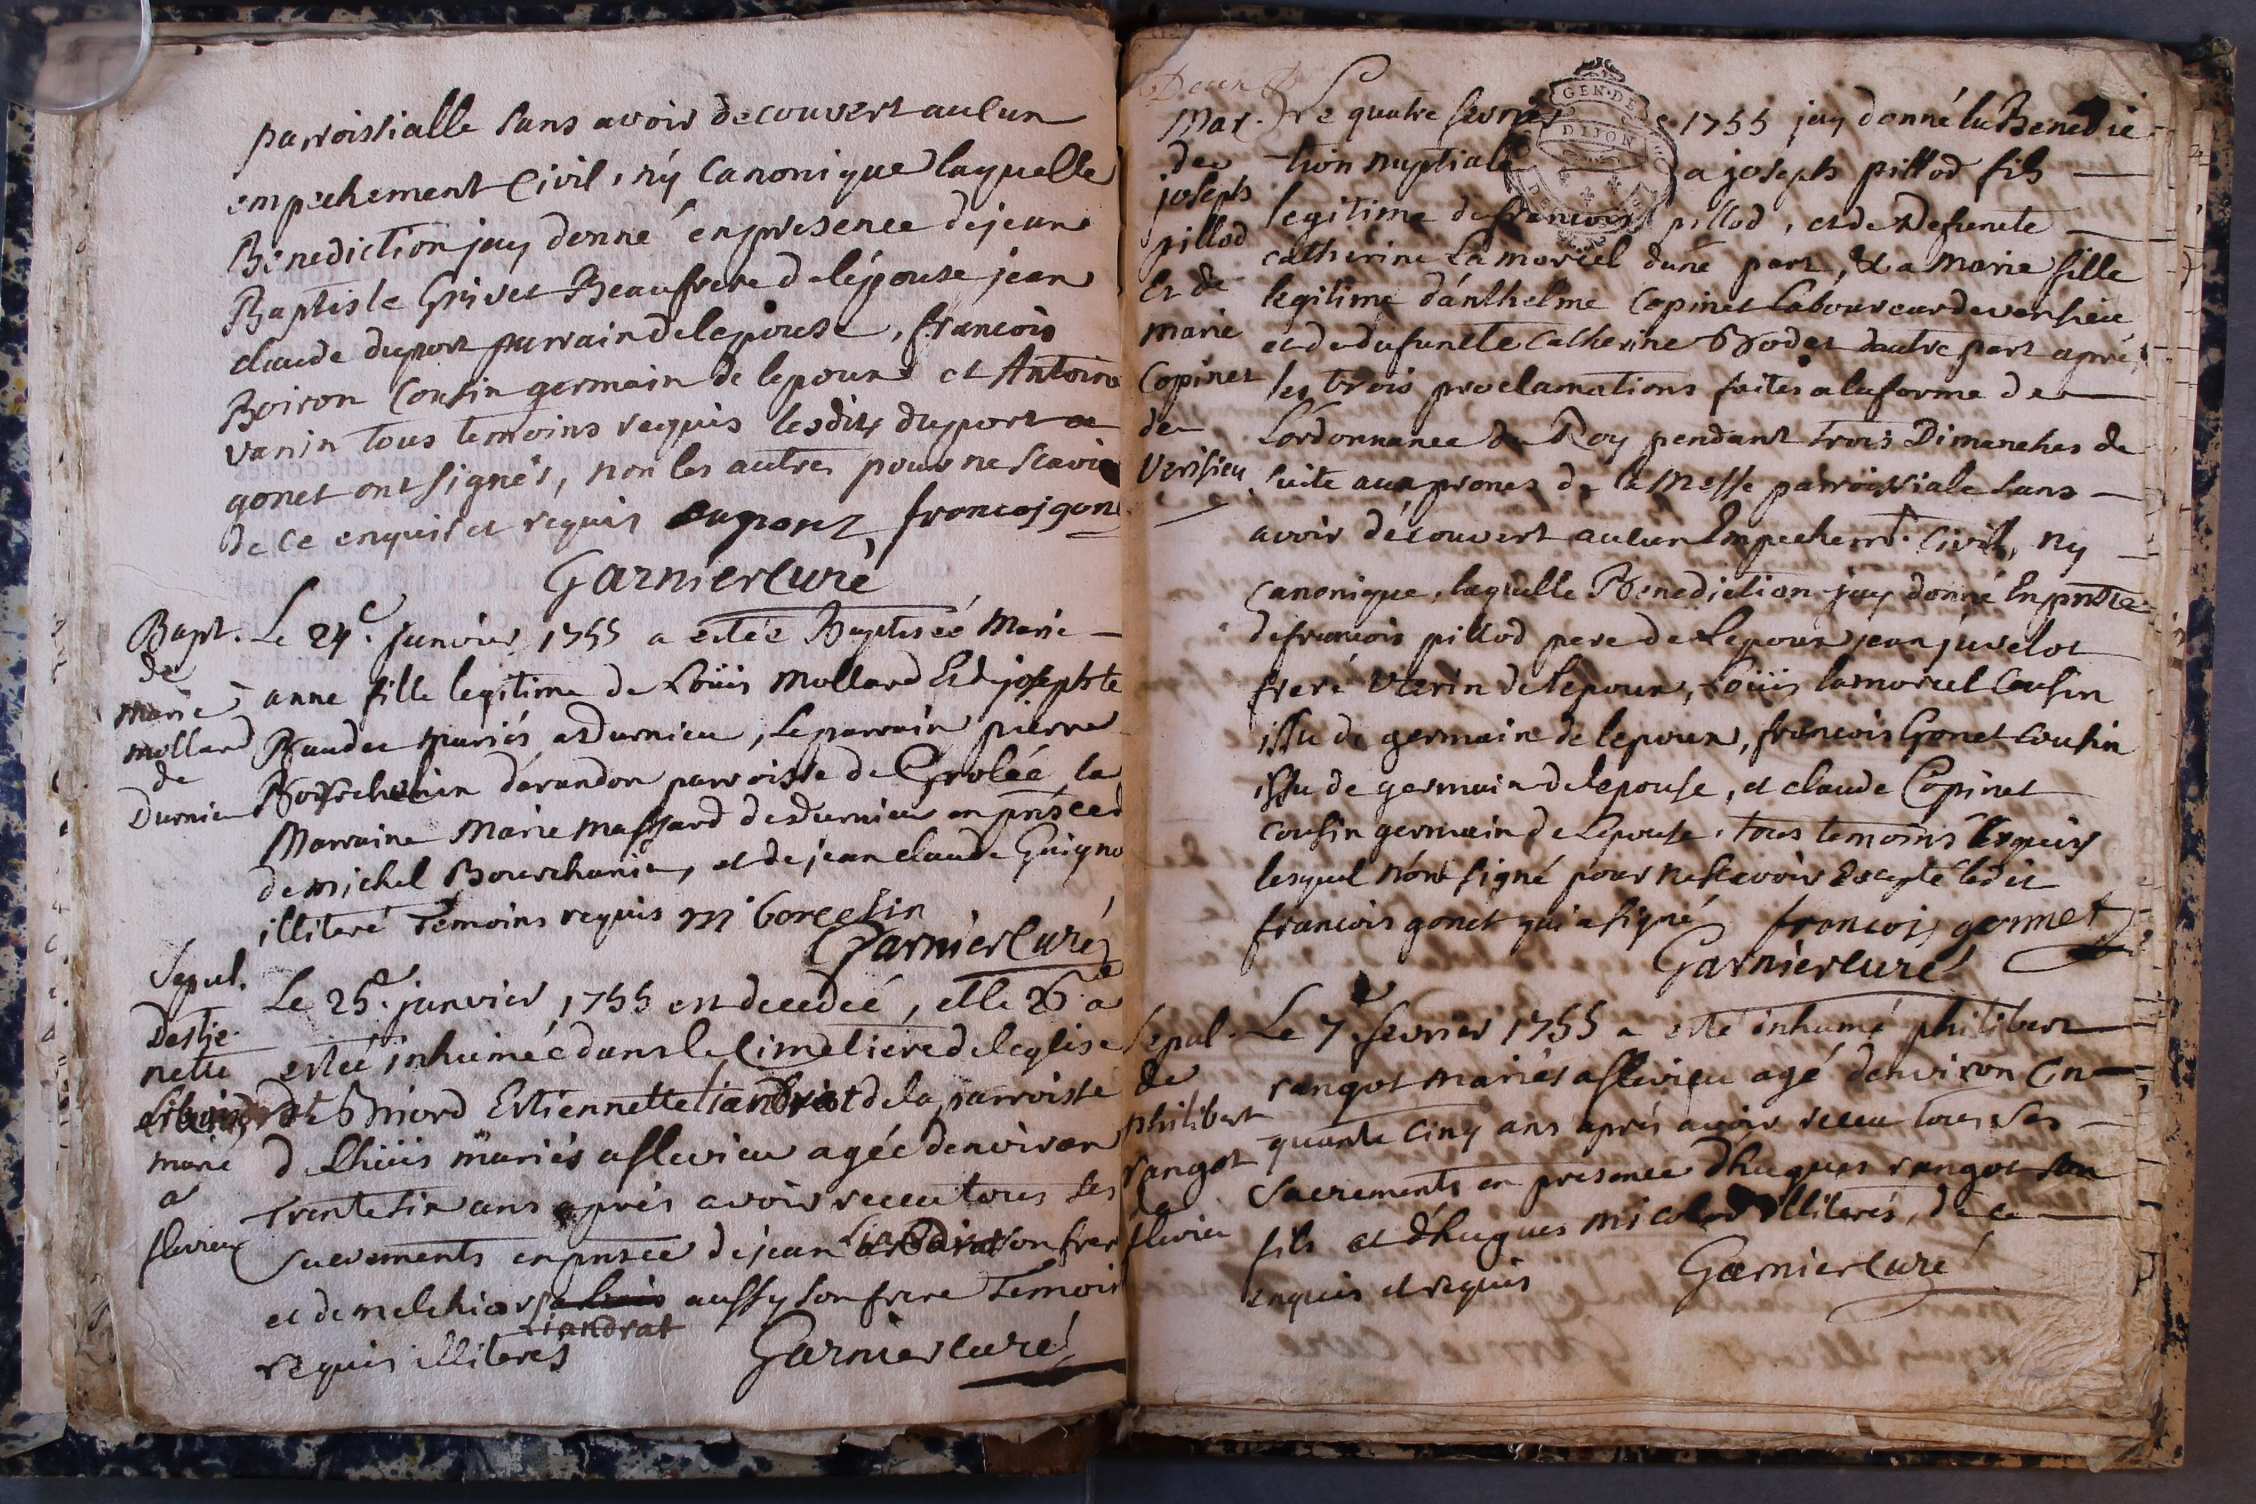 parroissialle sans avoir decouvert aucun
empechement Civil, ny Canonique laquelle
Benediction jay donné en presence de jean
Baptiste Grivet Beaufrere de lépouse jean
claude duport parrain de lepouse, francois
Boiron Cousin germain de lepoux et Antoine
vanin tous temoins requis lesdits duport et
gonet ont signés, non les autres pour ne scavoir
de ce enquis et requis duport francoj gone
Garnier Curé
Bapt.
de
marie
mollard
de
Durnieu
Le 24e. janvier 1755 a estée Baptiseé Marie
anne fille legitime de Loüis Mollard Et de josephte
Baudet mariés a Durnieu, le parrain pierre
Bourchanin dérandon parroisse de Groleé la
Marraine Marie massard de Durnieu en prîsce
de michel Bourchanin, et de jean claude Guigno
illiteré Temoins requis m borcelin
Garnier Curé
Sepul.
Destie
nette
marié
a
flevieu
Le 25e. janvier 1755 est decedeé, et le 26e a
estée inhumeé dans le Cimetiere de leglise
de Briord Estiennette Liandrat de la parroisse
de Lhüis mariés a flevieu agée denviron
trente six ans aprés avoir receu tous ses
sacrements en prîsce de jean Liandrat son frer
et de melchior aussy son frere Temoin
Liandrat
requis illiterés Garnier curé
GEN. DE
DIJON
Mar.
de
joseph
pillod
Et de
marie
Copinet
de
Verisieu
Le quatre fevrier 1755 jay donné la Benedic
tion nuptiale a joseph pillod fils
legitime de francois pillod, et de Defuncte
catherine Lamorcel dune part, & a Marie fille
legitime dánthelme Copinet Laboureur de versieu
et de defuncte Catherine Bodet dautre part aprés
les trois proclamations faites a la forme de
Lórdonnance du Roy pendant trois Dimanches de
suite aux prones de la Messe parroissiale sans
avoir découvert aucun Empechemt. Civil, ny
Canonique, laquelle Benediction jay donné En pntce
de francois pillod pere de Lepoux jean juvelot
freré Vterin de lepoux, Loüis lamorcel Cousin
issu de germain de lepoux, francois Gonet Cousin
issu de germain de lepouse, et claude Copinet
Cousin germain de Lepouse, tous temoins requis
lesquel nónt signé pour ne scavoir Excepté ledit
francois gonet qui a signé francois gonnet
Garnier Curé
Sepul.
de
philibert
rangot
de
flevieu
Le 7e. fevrier 1755 a esté inhumé philibert
rangot mariés a flevieu agé denviron Cin
quante Cinq ans aprés avoir receu tous ses
Sacrements en presence d'hugues rangot son
fils et d'hugues nicolod illiterés, de ce
enquis et requis Garnier Curé